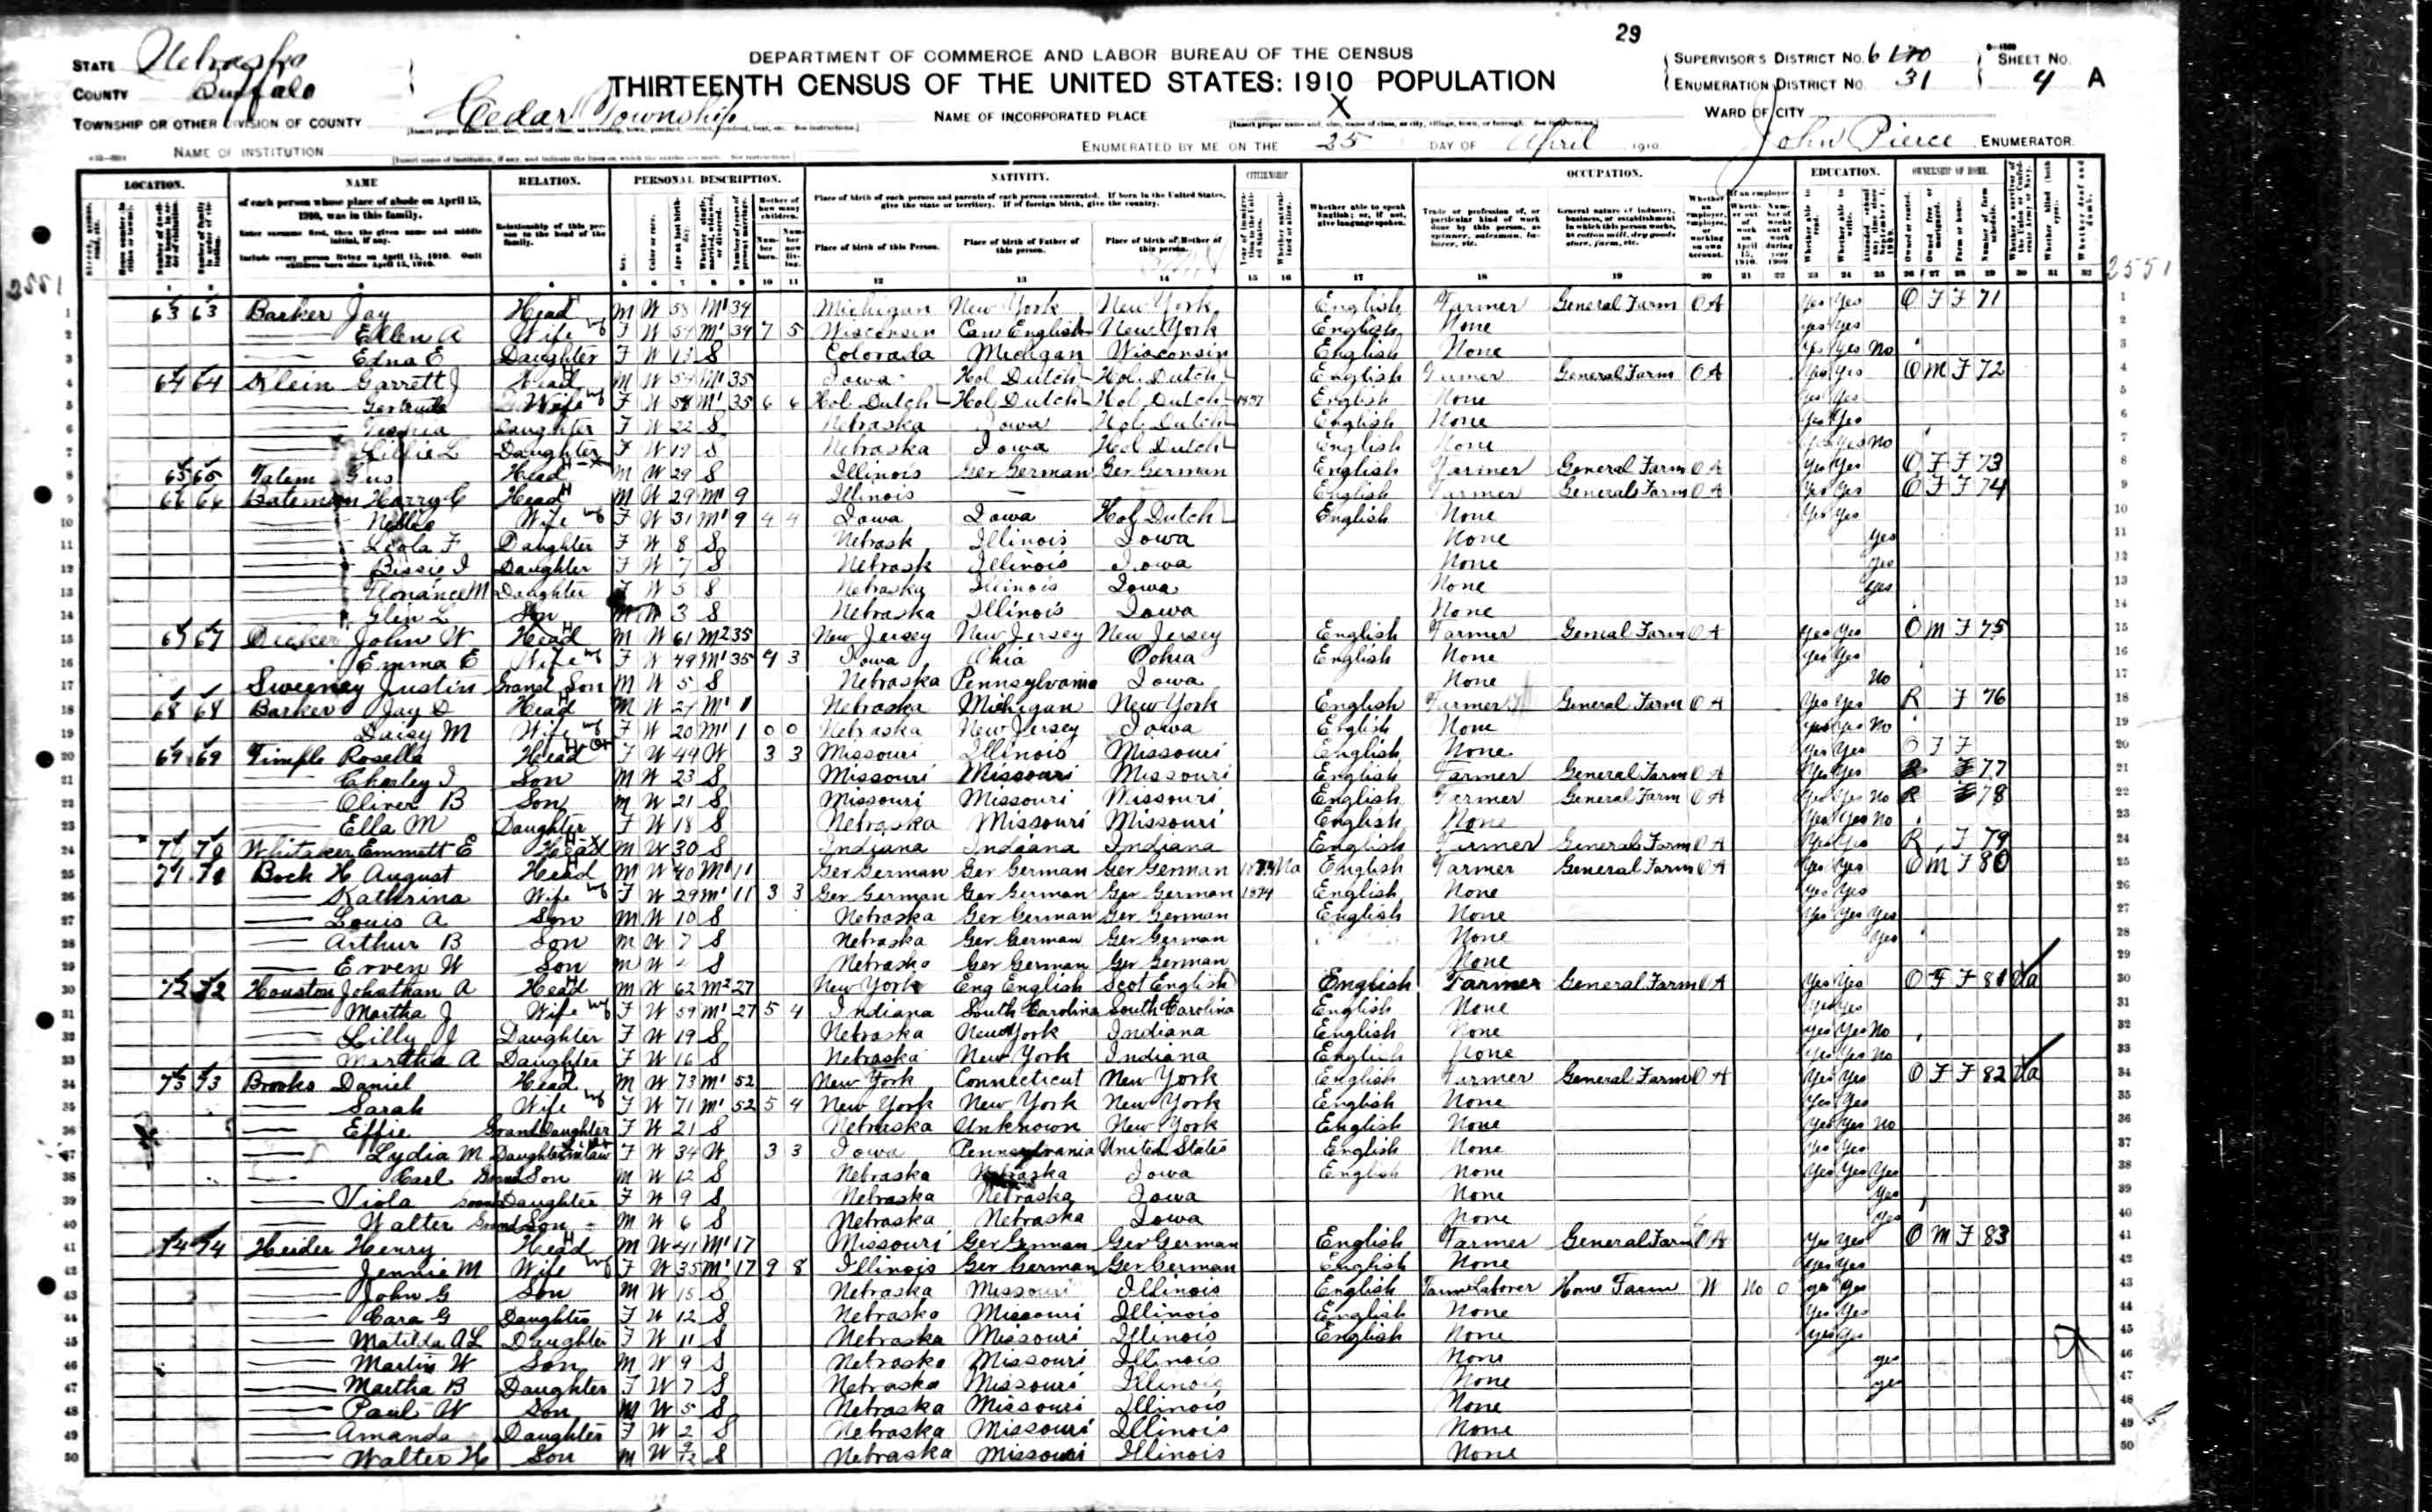 29
STATE Nebraska
COUNTY Buffalo
TOWNSHIP OR OTHER DIVISION OF COUNTY Cedar Township
NAME OF INSTITUTION
DEPARTMENT OF COMMERCE AND LABOR BUREAU OF THE CENSUS
THIRTEENTH CENSUS OF THE UNITED STATES: 1910 POPULATION
NAME OF INCORPORATED PLACE X
ENUMERATED BY ME ON THE 25 DAY OF April 1910.
SUPERVISOR'S DISTRICT NO. 6
ENUMERATION DISTRICT NO. 31
SHEET NO. 4 A
WARD OF CITY
John Pierce ENUMERATOR.
LOCATION. NAME RELATION. PERSONAL DESCRIPTION. NATIVITY. CITIZENSHIP OCCUPATION. EDUCATION. OWNERSHIP OF HOME.
of each person whose place of abode on April 15, 1910, was in this family.
Enter surname first, then the given name and middle initial, if any.
Include every person living on April 15, 1910. Omit children born since April 15, 1910.
Relationship of this person to the head of the family.
Place of birth of each person and parents of each person enumerated. If born in the United States, give the state or territory. If of foreign birth, give the country.
Place of birth of this Person. Place of birth of Father of this person. Place of birth of Mother of this person.
Whether able to speak English; or, if not, give language spoken.
2551 2551
1 63 63 Barker Jay Head M W 58 M1 34 Michigan New York New York English Farmer General Farm OA Yes Yes O F F 71
2 Ellen A Wife F W 54 M1 34 7 5 Wisconsin Can English New York English None Yes Yes
3 Edna E Daughter F W 13 S Colorada Michigan Wisconsin English None Yes Yes No
4 64 64 Klein Garrett J Head M W 54 M1 35 Iowa Hol Dutch Hol Dutch English Farmer General Farm OA Yes Yes O M F 72
5 Gertrude Wife F W M1 35 6 6 Hol Dutch Hol Dutch Hol Dutch English None Yes Yes
6 Daughter F W 22 S Nebraska Iowa Hol Dutch English None Yes Yes
7 Lillie L Daughter F W 19 S Nebraska Iowa Hol Dutch English None Yes Yes No
8 65 65 Tatem Gus Head M W 29 S Illinois Ger German Ger German English Farmer General Farm OA Yes Yes O F F 73
9 66 66 Bateman Harry C Head M W 29 M1 9 Illinois — — English Farmer General Farm OA Yes Yes O F F 74
10 Nellie Wife F W 31 M1 9 4 4 Iowa Iowa Hol Dutch English None Yes Yes
11 Leola F Daughter F W 8 S Nebrask Illinois Iowa None Yes
12 Bessie I Daughter F W 7 S Nebrask Illinois Iowa None Yes
13 Floriance M Daughter F W 5 S Nebraska Illinois Iowa None Yes
14 Glen L Son M W 3 S Nebraska Illinois Iowa None
15 67 67 Decker John W Head M W 61 M2 35 New Jersey New Jersey New Jersey English Farmer General Farm OA Yes Yes O M F 75
16 Emma E Wife F W 49 M1 35 4 3 Iowa Ohia Oohia English None Yes Yes
17 Sweeney Justin Grand Son M W 5 S Nebraska Pennsylvania Iowa None No
18 68 68 Barker Jay D Head M W 27 M1 1 Nebraska Michigan New York English Farmer General Farm OA Yes Yes R F 76
19 Daisy M Wife F W 20 M1 1 0 0 Nebraska New Jersey Iowa English None Yes Yes No
20 69 69 Timple Rosella Head F W 44 W 3 3 Missouri Illinois Missouri English None Yes Yes O F F
21 Charley I Son M W 23 S Missouri Missouri Missouri English Farmer General Farm OA Yes Yes R F 77
22 Oliver B Son M W 21 S Missouri Missouri Missouri English Farmer General Farm OA Yes Yes No R F 78
23 Ella M Daughter F W 18 S Nebraska Missouri Missouri English None Yes Yes No
24 70 70 Whitaker Emmett E Head M W 30 S Indiana Indiana Indiana English Farmer General Farm OA Yes Yes R F 79
25 71 71 Bock H August Head M W 40 M1 11 Ger German Ger German Ger German Na English Farmer General Farm OA Yes Yes O M F 80
26 Kathrina Wife F W 29 M1 11 3 3 Ger German Ger German Ger German 1884 English None Yes Yes
27 Louis A Son M W 10 S Nebraska Ger German Ger German English None Yes Yes Yes
28 Arthur B Son M W 7 S Nebraska Ger German Ger German None Yes
29 Erven W Son M W S Nebraska Ger German Ger German None
30 72 72 Houston Johathan A Head M W 62 M2 27 New York Eng English Scot English English Farmer General Farm OA Yes Yes O F F 81 Ua
31 Martha J Wife F W 59 M1 27 5 4 Indiana South Carolina South Carolina English None Yes Yes
32 Lilly J Daughter F W 19 S Nebraska New York Indiana English None Yes Yes No
33 Martha A Daughter F W 16 S Nebraska New York Indiana English None Yes Yes No
34 73 73 Brooks Daniel Head M W 73 M1 52 New York Connecticut New York English Farmer General Farm OA Yes Yes O F F 82 Ua
35 Sarah Wife F W 71 M1 52 5 4 New York New York New York English None Yes Yes
36 Effie Grand Daughter F W 21 S Nebraska Unknown New York English None Yes Yes No
37 Lydia M Daughter in law F W 34 W 3 3 Iowa Pennsylvania United States English None Yes Yes
38 Carl Grand Son M W 12 S Nebraska Nebraska Iowa English None Yes Yes Yes
39 Viola Grand Daughter F W 9 S Nebraska Nebraska Iowa None Yes
40 Walter Grand Son M W 6 S Nebraska Nebraska Iowa None Yes
41 74 74 Heider Henry Head M W 41 M1 17 Missouri Ger German Ger German English Farmer General Farm OA Yes Yes O M F 83
42 Jennie M Wife F W 35 M1 17 9 8 Illinois Ger German Ger German English None Yes Yes
43 John G Son M W 15 S Nebraska Missouri Illinois English Farm Laborer Home Farm W No 0 Yes Yes
44 Cara G Daughter F W 12 S Nebraska Missouri Illinois English None Yes Yes
45 Matilda A L Daughter F W 11 S Nebraska Missouri Illinois English None Yes Yes
46 Martin W Son M W 9 S Nebraska Missouri Illinois None Yes
47 Martha B Daughter F W 7 S Nebraska Missouri Illinois None Yes
48 Paul W Son M W 5 S Nebraska Missouri Illinois None
49 Amanda Daughter F W 2 S Nebraska Missouri Illinois None
50 Walter H Son M W 9/12 S Nebraska Missouri Illinois None